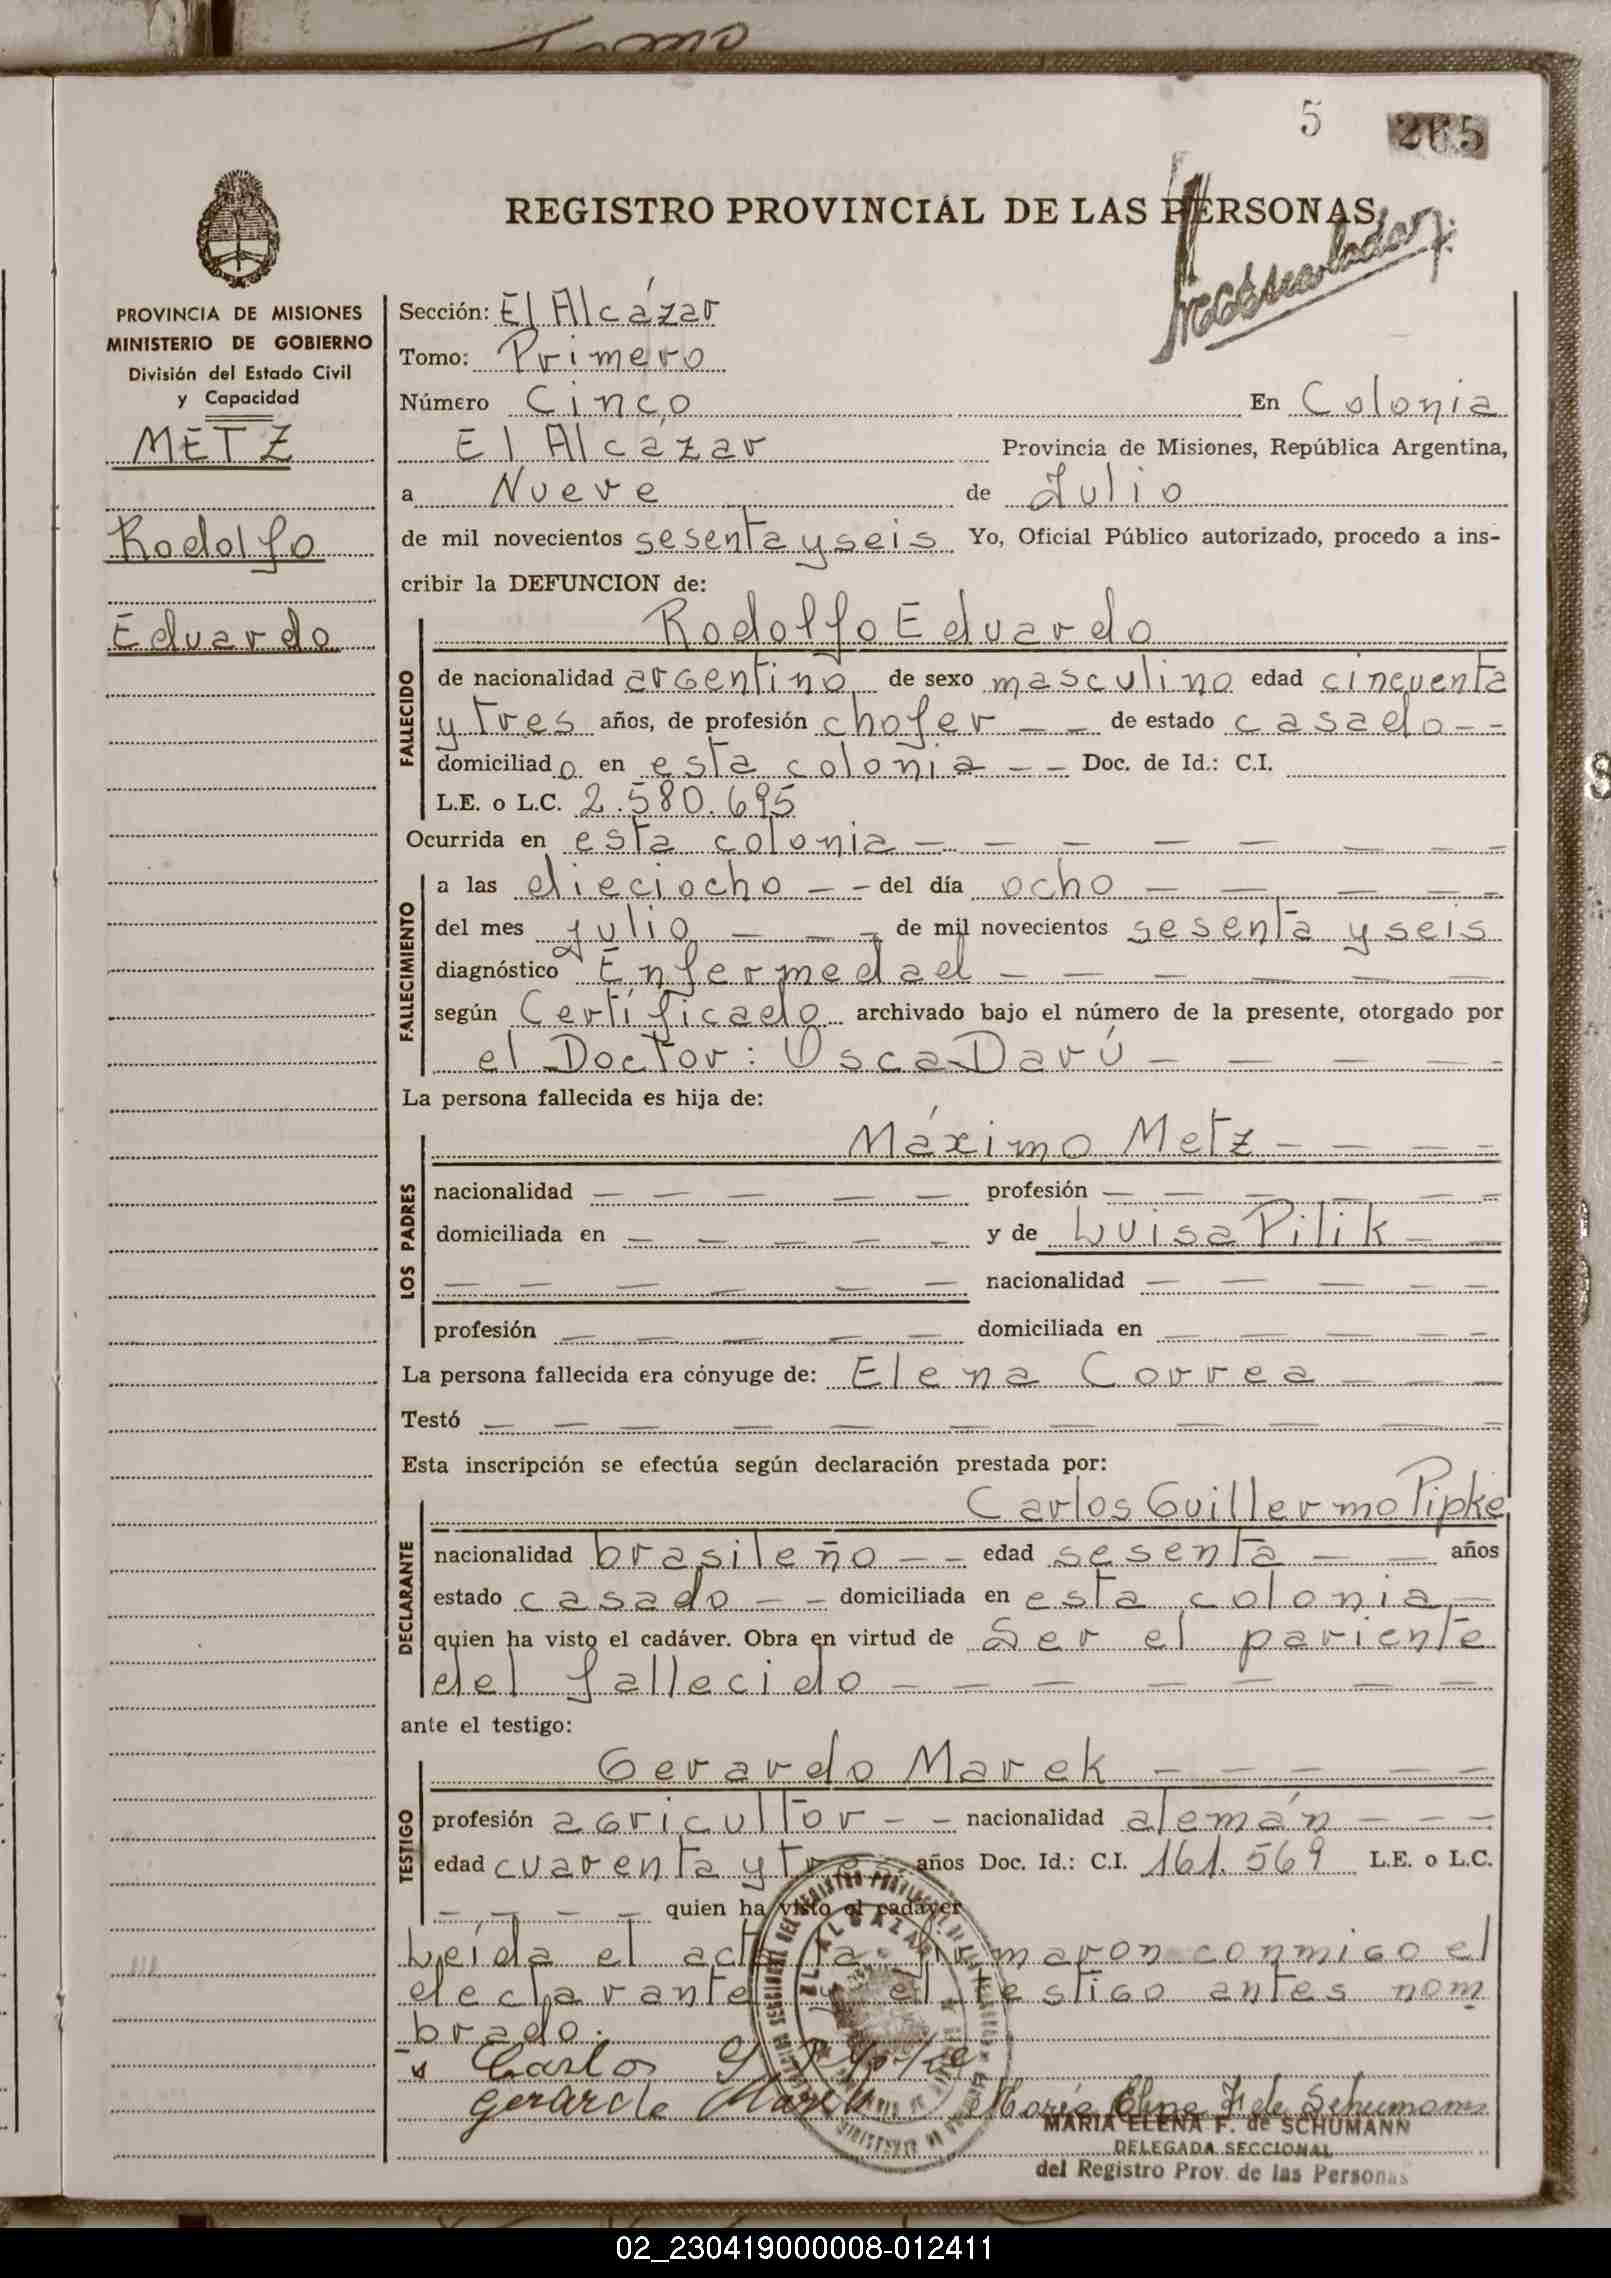 Tomo
5 265
REGISTRO PROVINCIAL DE LAS PERSONAS
PROVINCIA DE MISIONES
MINISTERIO DE GOBIERNO
División del Estado Civil
y Capacidad
METZ
Rodolfo
Eduardo
Sección: El Alcázar
Tomo: Primero
Número Cinco En Colonia
El Alcázar Provincia de Misiones, República Argentina,
a Nueve de Julio
de mil novecientos sesenta y seis Yo, Oficial Público autorizado, procedo a ins-
cribir la DEFUNCION de:
Rodolfo Eduardo
FALLECIDO
de nacionalidad argentino de sexo masculino edad cincuenta
y tres años, de profesión chofer — — de estado casado - -
domiciliado en esta colonia — — Doc. de Id.: C.I.
L.E. o L.C. 2.580.695
Ocurrida en esta colonia — — — — — — —
FALLECIMIENTO
a las dieciocho — — del día ocho — — — — —
del mes julio — — — de mil novecientos sesenta y seis
diagnóstico Enfermedad — — — — — —
según Certificado archivado bajo el número de la presente, otorgado por
el Doctor: Osca Darú — — — — —
La persona fallecida es hija de:
LOS PADRES
Máximo Metz — — — —
nacionalidad — — — — — profesión — — — — — —
domiciliada en — — — — — y de Luisa Pilik — —
— — — — — — nacionalidad — — — — —
profesión — — — — — domiciliada en — — — — — —
La persona fallecida era cónyuge de: Elena Correa — — —
Testó — — — — — — — — — — —
Esta inscripción se efectúa según declaración prestada por:
DECLARANTE
Carlos Guillermo Pipke
nacionalidad brasileño — — edad sesenta — — años
estado casado — — domiciliada en esta colonia —
quien ha visto el cadáver. Obra en virtud de Ser el pariente
del fallecido — — — — — — —
ante el testigo:
TESTIGO
Gerardo Marek — — — — —
profesión agricultor — — nacionalidad alemán — — —
edad cuarenta y tres años Doc. Id.: C.I. 161.569 L.E. o L.C.
— — — — quien ha visto el cadáver
Leída el acta la firmaron conmigo el
declarante y el testigo antes nom
brado.
Carlos G. Pipke
Gerardo Marek María Elena F. de Schumann
MARIA ELENA F. de SCHUMANN
DELEGADA SECCIONAL
del Registro Prov. de las Personas
EL ALCAZAR
02_230419000008-012411